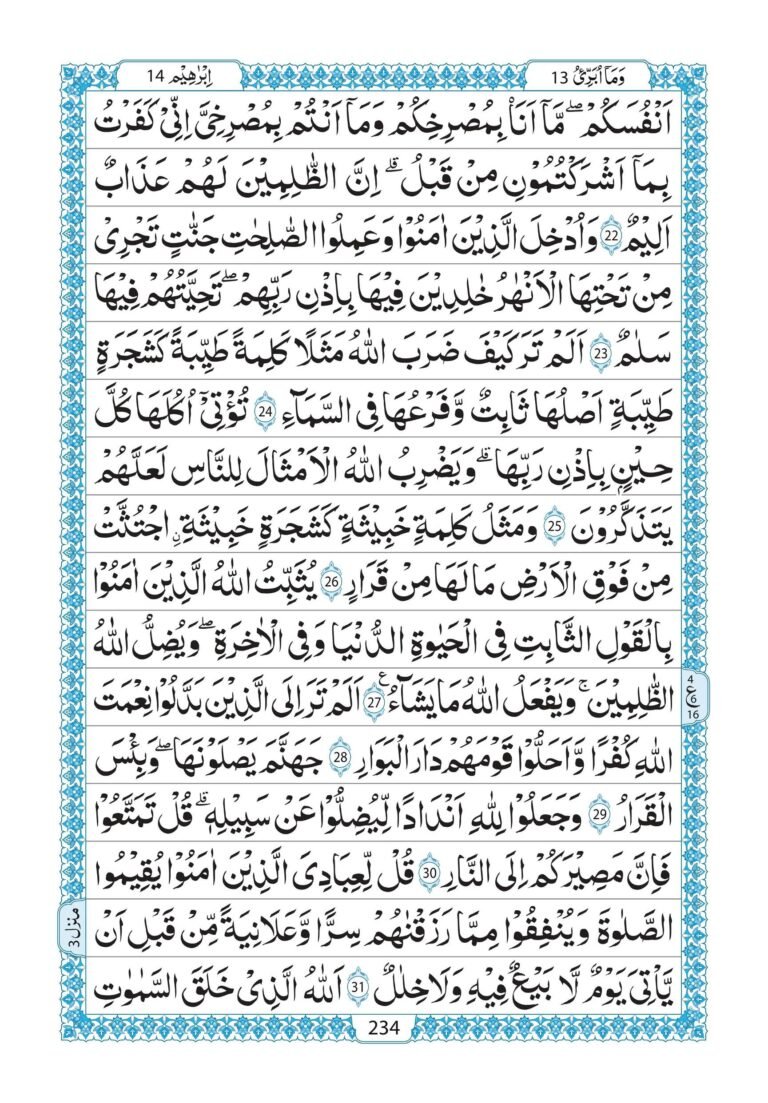 وَمَاۤ اُبَرِّئُ 13
اِبْرٰهِيْم 14
اَنْفُسَكُمْ ؕ مَاۤ اَنَا۠ بِمُصْرِخِكُمْ وَمَاۤ اَنْتُمْ بِمُصْرِخِىَّ اِنِّىْ كَفَرْتُ
بِمَاۤ اَشْرَكْتُمُوْنِ مِنْ قَبْلُ ؕ اِنَّ الظّٰلِمِيْنَ لَهُمْ عَذَابٌ
اَلِيْمٌ 22 وَاُدْخِلَ الَّذِيْنَ اٰمَنُوْا وَعَمِلُوا الصّٰلِحٰتِ جَنّٰتٍ تَجْرِىْ
مِنْ تَحْتِهَا الْاَنْهٰرُ خٰلِدِيْنَ فِيْهَا بِاِذْنِ رَبِّهِمْ ؕ تَحِيَّتُهُمْ فِيْهَا
سَلٰمٌ 23 اَلَمْ تَرَ كَيْفَ ضَرَبَ اللّٰهُ مَثَلًا كَلِمَةً طَيِّبَةً كَشَجَرَةٍ
طَيِّبَةٍ اَصْلُهَا ثَابِتٌ وَّفَرْعُهَا فِى السَّمَآءِ 24 تُؤْتِىْۤ اُكُلَهَا كُلَّ
حِيْنٍۭ بِاِذْنِ رَبِّهَا ؕ وَيَضْرِبُ اللّٰهُ الْاَمْثَالَ لِلنَّاسِ لَعَلَّهُمْ
يَتَذَكَّرُوْنَ 25 وَمَثَلُ كَلِمَةٍ خَبِيْثَةٍ كَشَجَرَةٍ خَبِيْثَةِ ۟اجْتُثَّتْ
مِنْ فَوْقِ الْاَرْضِ مَا لَهَا مِنْ قَرَارٍ 26 يُثَبِّتُ اللّٰهُ الَّذِيْنَ اٰمَنُوْا
بِالْقَوْلِ الثَّابِتِ فِى الْحَيٰوةِ الدُّنْيَا وَفِى الْاٰخِرَةِ ۚ وَيُضِلُّ اللّٰهُ
الظّٰلِمِيْنَ ۚ وَيَفْعَلُ اللّٰهُ مَا يَشَآءُ 27 اَلَمْ تَرَ اِلَى الَّذِيْنَ بَدَّلُوْا نِعْمَتَ
4 ع 16
اللّٰهِ كُفْرًا وَّاَحَلُّوْا قَوْمَهُمْ دَارَ الْبَوَارِ 28 جَهَنَّمَ يَصْلَوْنَهَا ؕ وَبِئْسَ
الْقَرَارُ 29 وَجَعَلُوْا لِلّٰهِ اَنْدَادًا لِّيُضِلُّوْا عَنْ سَبِيْلِهٖ ؕ قُلْ تَمَتَّعُوْا
فَاِنَّ مَصِيْرَكُمْ اِلَى النَّارِ 30 قُلْ لِّعِبَادِىَ الَّذِيْنَ اٰمَنُوْا يُقِيْمُوا
الصَّلٰوةَ وَيُنْفِقُوْا مِمَّا رَزَقْنٰهُمْ سِرًّا وَّعَلَانِيَةً مِّنْ قَبْلِ اَنْ
منزل 3
يَّاْتِىَ يَوْمٌ لَّا بَيْعٌ فِيْهِ وَلَا خِلٰلٌ 31 اَللّٰهُ الَّذِىْ خَلَقَ السَّمٰوٰتِ
234